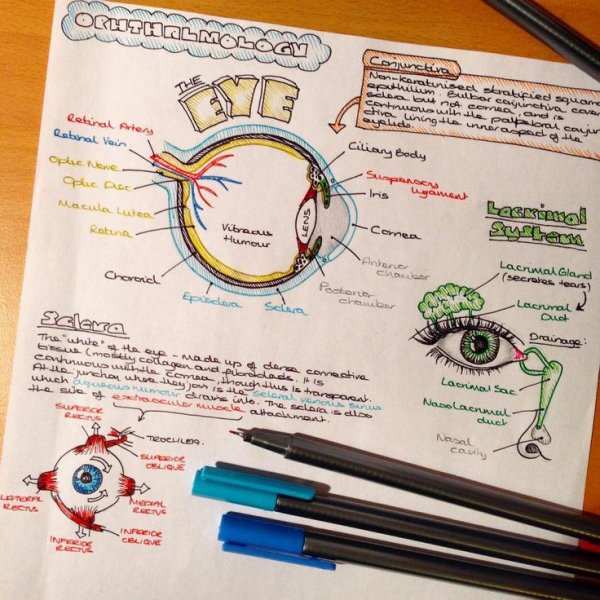 OPHTHALMOLOGY
THE
EYE
Conjunctiva
Non-keratinised stratified squamo
epithelium. Bulbar conjunctiva cover
sclera but not cornea, and is
continuous with the palpebral conjun
ctiva lining the inner aspect of the
eyelids.
Retinal Artery
Retinal Vein
Optic Nerve
Optic Disc
Macula Lutea
Retina
Choroid
Episclera
Sclera
Vitreous
Humour
LENS
Ciliary Body
Suspensory
ligament
Iris
Cornea
Anterior
chamber
Posterior
chamber
Lacrimal
System
Lacrimal Gland
(secretes tears)
Lacrimal
Duct
Drainage:
Lacrimal Sac
Nasolacrimal
duct
Nasal
cavity
Sclera
The "white" of the eye - made up of dense connective
tissue (mostly collagen and fibroblasts. It is
continuous with the cornea, though this is transparent.
At the junction where they join is the scleral venous sinus
which aqueous humour drains into. The sclera is also
the site of extraocular muscle attachment.
SUPERIOR
RECTUS
TROCHLEA
SUPERIOR
OBLIQUE
LATERAL
RECTUS
MEDIAL
RECTUS
INFERIOR
RECTUS
INFERIOR
OBLIQUE